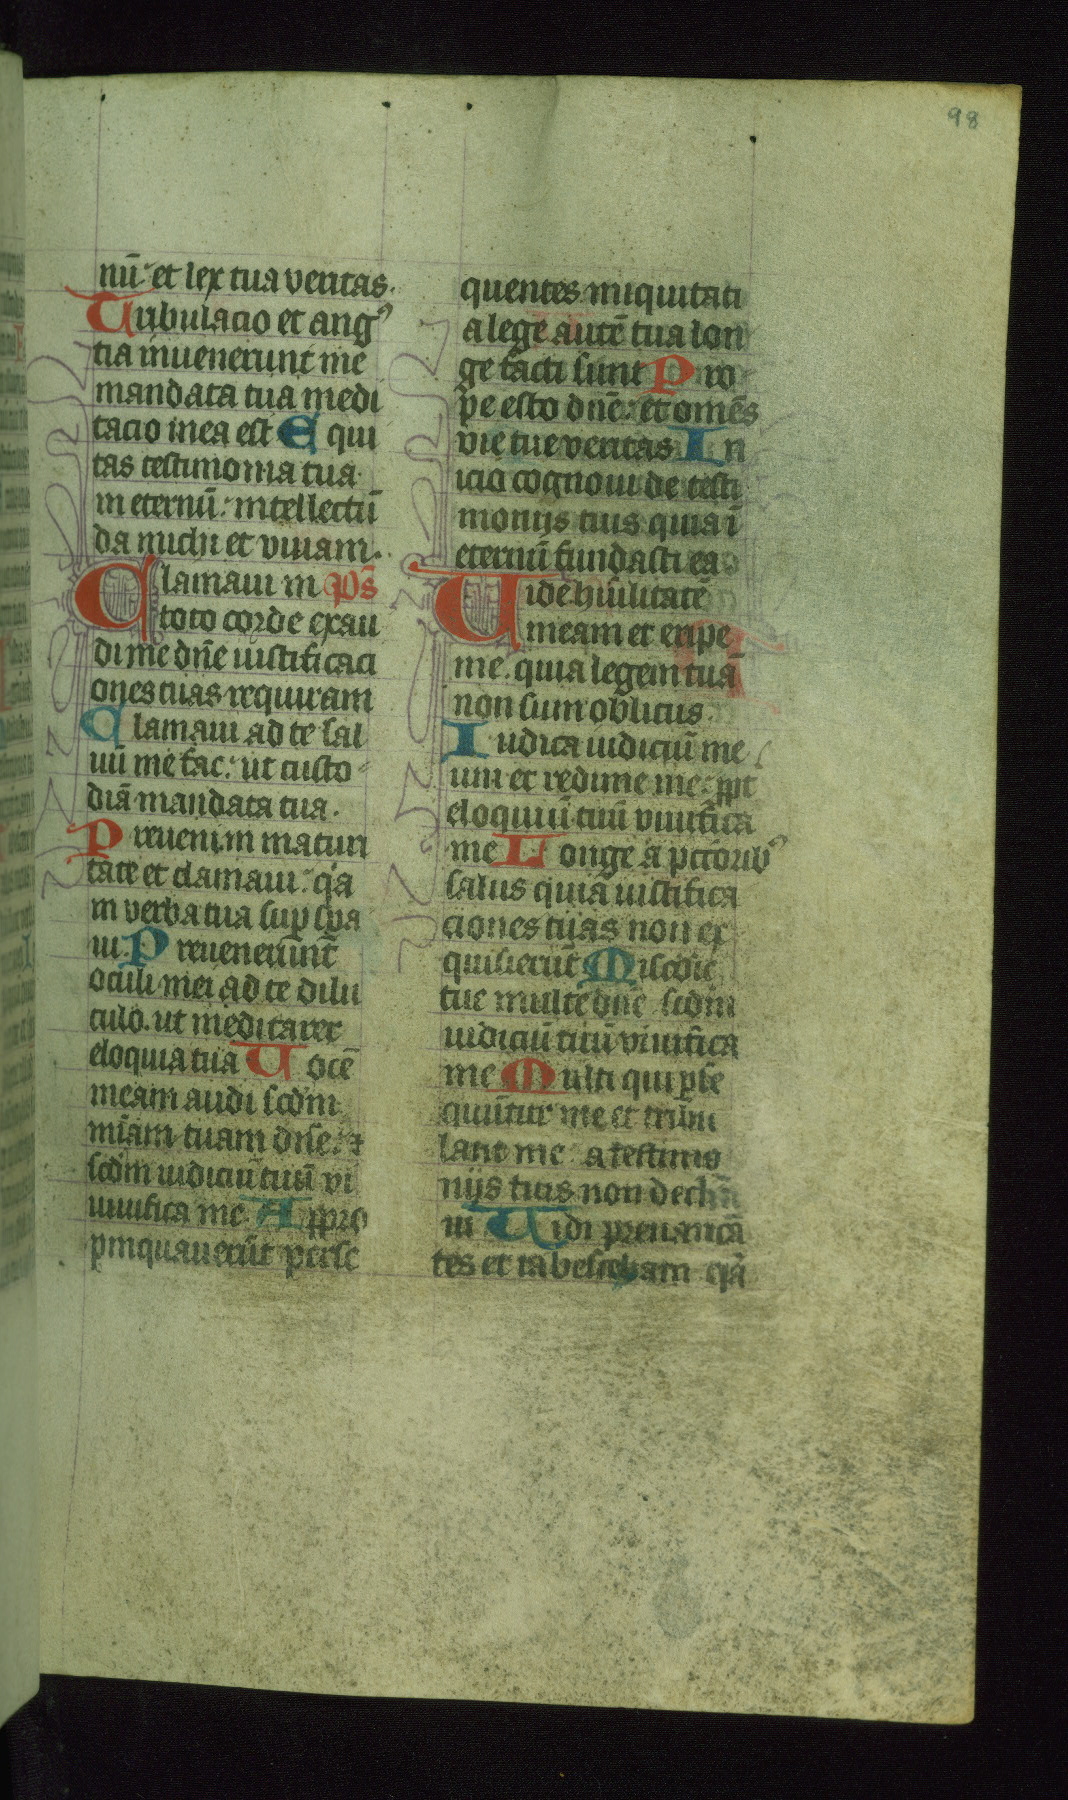 98
nū et lex tua veritas.
Tribulacio et angꝰ
tia invenerunt me
mandata tua medi
tacio mea est Equi
tas testimonia tua
in eternū: intellectū
da michi et vivam.
Clamavi in p̄s
toto corde exau
di me dn̄e iustificaci
ones tuas requiram
Clamavi ad te sal
vū me fac: ut custo
diā mandata tua.
Preveni in maturi
tate et clamavi: q̄a
in verba tua sup̱ spa
vi. Prevenerūnt
oculi mei ad te dilu
culo. ut meditarer
eloquia tua Vocē
meam audi scd̄m
mīam tuam dn̄e: ⁊
scd̄m iudiciū tuū vi
vifica me. Appro
pinquaverūt perse
quentes iniquitati
a lege autē tua lon
ge facti sunt Pro
pe esto dn̄e: et omēs
vie tue veritas In
icio cognovi de testi
monijs tuis quia ī
eternū fundasti ea
Vide hūilitatē
meam et eripe
me. quia legem tuā
non sum oblitus
Iudica iudiciū me
um et redime me: ꝓpt
eloquiū tuū vivifica
me Longe a pctōribꝰ
salus quia iustifica
ciones tuas non ex
quisierūt Misc̄die
tue multe dn̄e scd̄m
iudiciū tuū vivifica
me Multi qui ꝑse
quūtur me et tribu
lant me a testimo
nijs tuis non declīa
vi Vidi prevaricā
tes et tabescebam q̄a